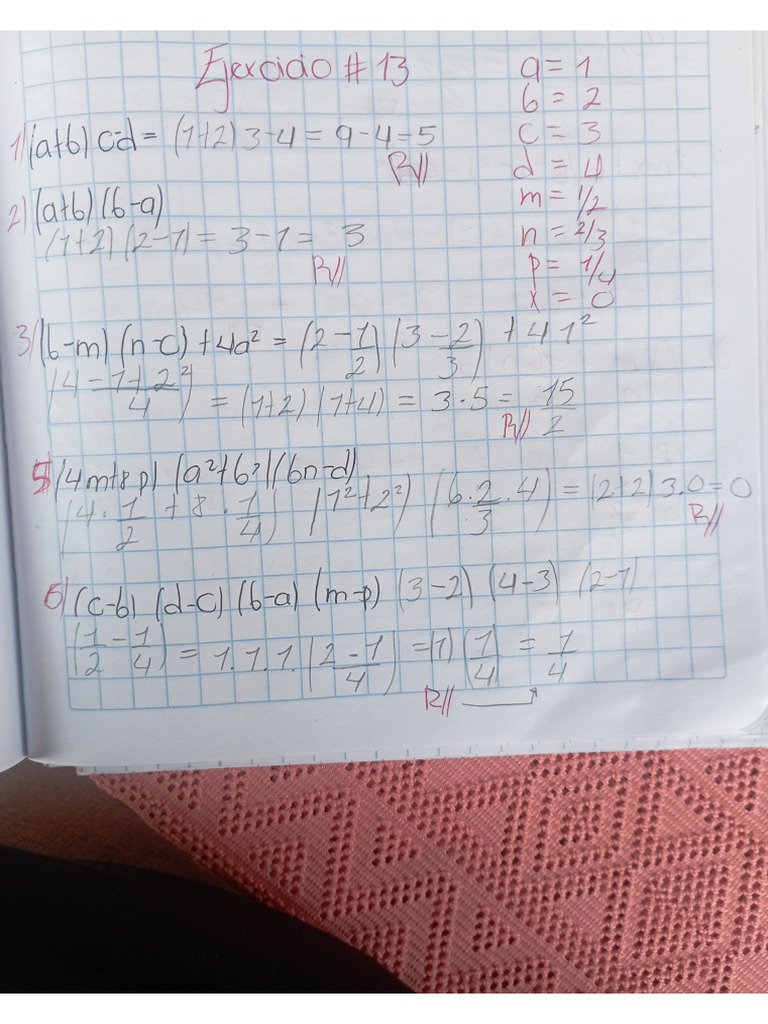 Ejercicio # 13
a = 1
b = 2
c = 3
d = 4
m = 1/2
n = 2/3
p = 1/4
x = 0
1) (a+b) c-d = (1+2) 3-4 = 9-4=5
R//
2) (a+b) (b-a)
(1+2) (2-1) = 3-1 = 3
R//
3) (b-m) (n-c) +4a² = (2-1/2) (3-2/3) +4 1²
(4-1+2²/4) = (1+2) (1+4) = 3·5 = 15/2
R//
5) (4m+8p) (a²+b²) (6n-d)
(4·1/2 + 8·1/4) (1²+2²) (6·2/3·4) = (2+2) 3.0=0
R//
6) (c-b) (d-c) (b-a) (m-p) (3-2) (4-3) (2-1)
(1/2 - 1/4) = 1.1.1. (2-1/4) =(1) (1/4) = 1/4
R//